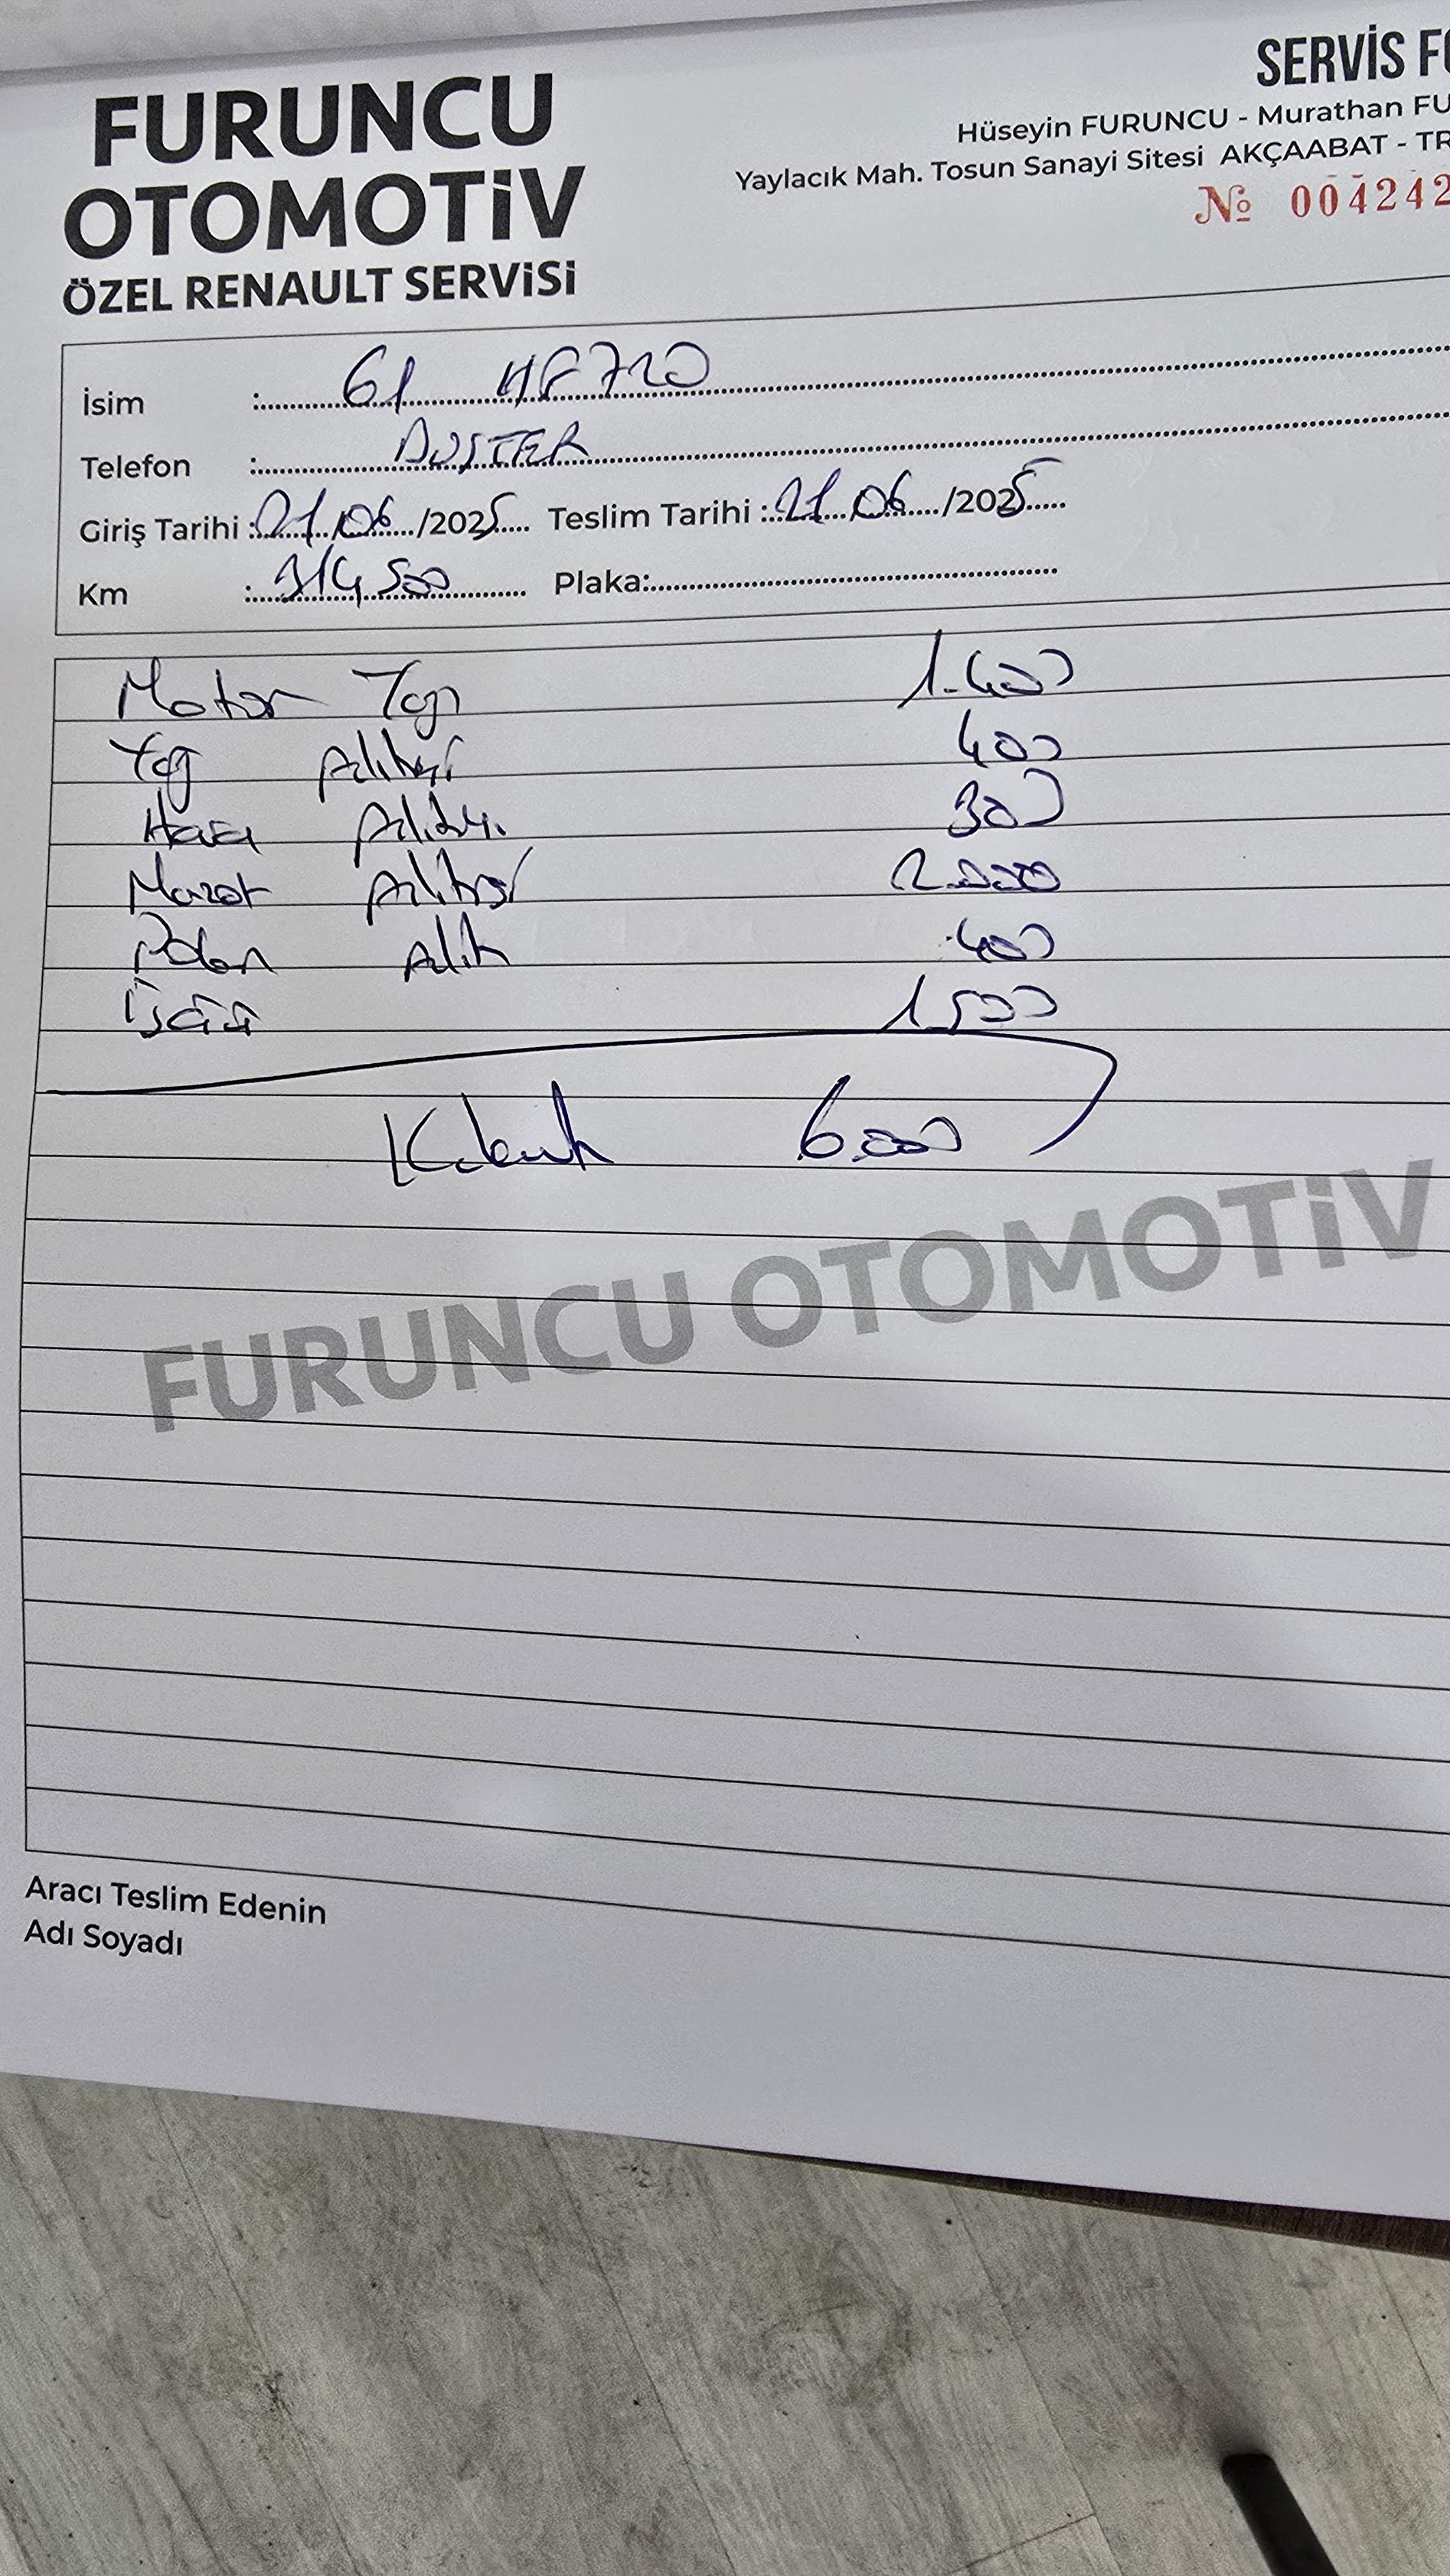 SERVİS F
FURUNCU
OTOMOTİV
ÖZEL RENAULT SERVİSİ
Hüseyin FURUNCU - Murathan FU
Yaylacık Mah. Tosun Sanayi Sitesi AKÇAABAT - TR
№ 004242
İsim : 61 HF 720
Telefon : DUSTER
Giriş Tarihi : 21/06/2025 Teslim Tarihi : 21/06/2025
Km : 314 500 Plaka:
Motor Yağı 1.400
Yağ Filitresi 400
Hava Filitre. 300
Mazot Filitresi 2.000
Polen Filit 400
İşçilik 1.500
6.000
FURUNCU OTOMOTİV
Aracı Teslim Edenin
Adı Soyadı